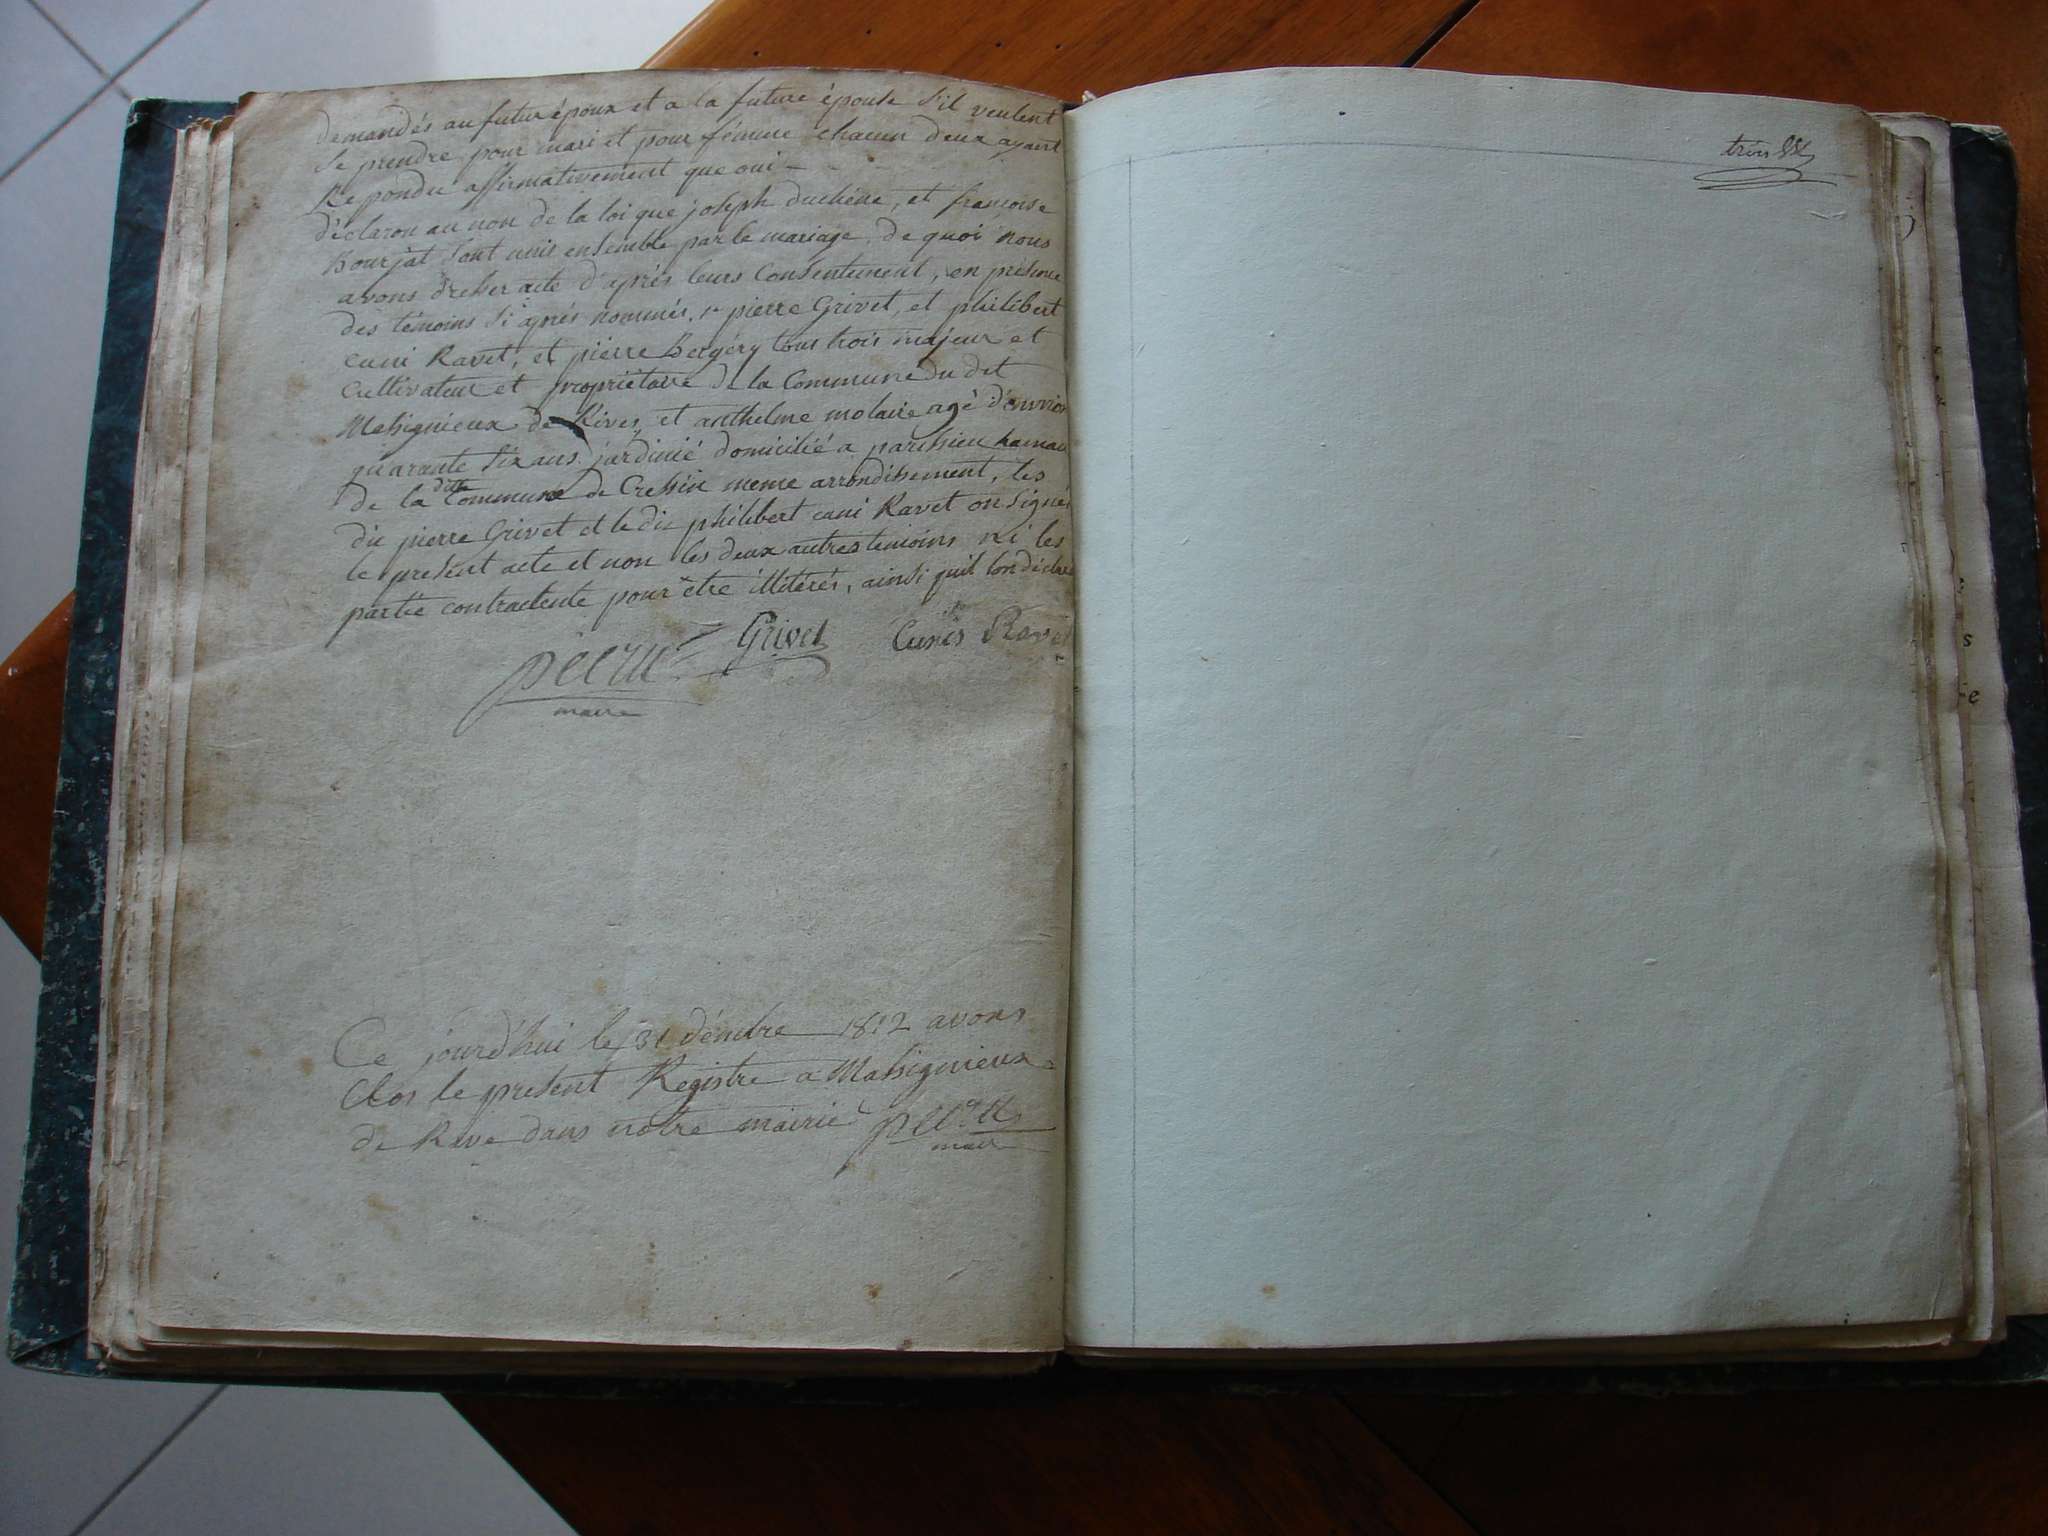 demandés au futur époux et a la future épouse s'il veulent
se prendre pour mari et pour fémme chacun deux ayant
Repondu affirmativement que oui —
déclaron au non de la loi que joseph duchêne, et francoise
Bourjat sont unis ensemble par le mariage, de quoi nous
avons dresser acte d'après leurs Consentement, en présence
des témoins si après nommés, pierre Grivet, et philibert
cuni Ravet, et pierre Bergéry tous trois majeur et
Cultivateur et propriétaire de la Commune du dit
Massignieux de Rives, et anthelme molaire agé d'environ
quarante six ans jardinié domicilié a parissieu hamau
de la dite Commune de Cressin meme arrondissement, les
du pierre Grivet et le du philibert cuni Ravet on signé
le present acte et non les deux autres temoins ni les
partie contractente pour être illitérés, ainsi quil lon déclaré
Grivet Cunis Ravet
maire
Ce jourd'hui le 31 démbre 1812 avons
Clos le present Registre a Massignieux
de Rive dans notre mairie
maire
trois